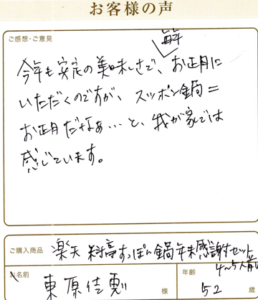 お客様の声
ご感想・ご意見
毎年
今年も安定の美味しさで、お正月に
いただくのですが、スッポン鍋＝
お正月だなぁ…と、我が家では
感じています。
ご購入商品
楽天 料亭すっぽん鍋年末感謝セット
4~5人前
お名前
東原佳
様
年齢
52
歳